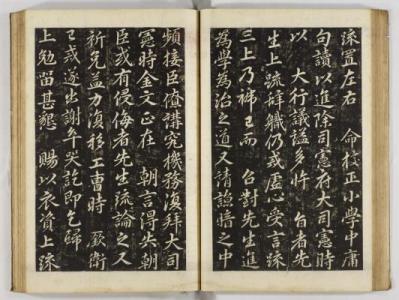 疏置左右　命校正小學中庸
句讀以進除司憲府大司憲時
以　大行議謚多忤　旨者先
生上疏辞軄仍或虛心受言疏
三上乃褫已而　召對先生進
為學為治之道又請謹暗之中
頻接臣僚講究機務復拜大司
憲時金文正在　朝言得失朝
臣或有侵侮者先生疏論之又
祈免益力復移工曹時　嚴衛
已戒遂出謝午哭訖即乞歸
上勉留甚懇　賜以衣資上疏